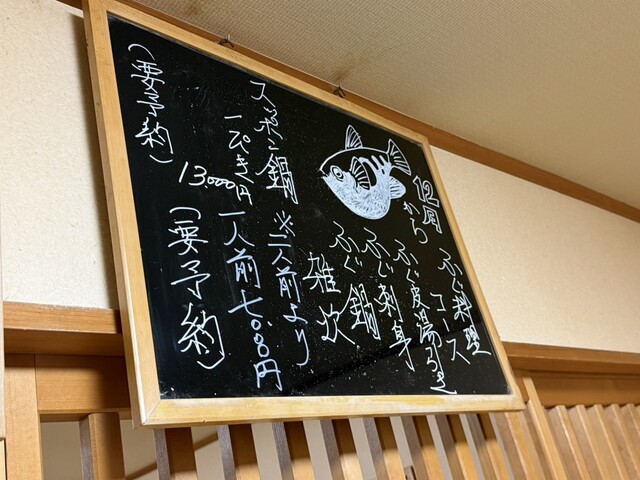 12月から
ふぐ料理
コース
ふぐ皮湯引き
ふぐ刺身
ふぐ鍋
雑炊
※二人前より
一人前七,000円
(要予約)
スッポン鍋
一ぴき
13,000円
(要予約)